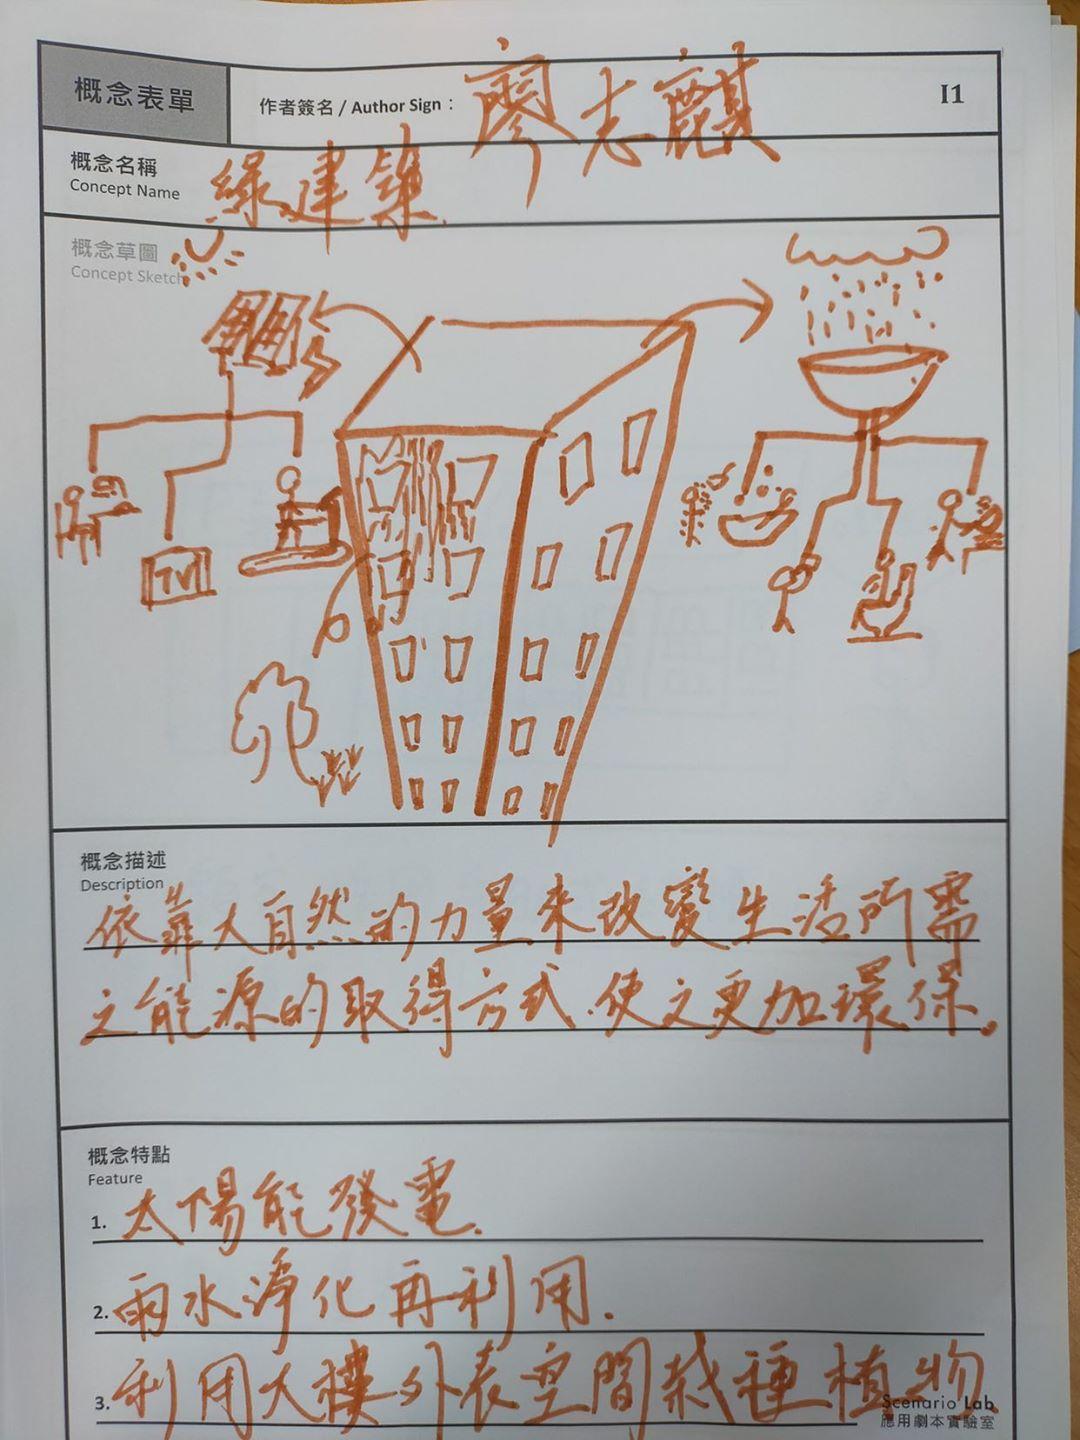 概念表單
作者簽名 / Author Sign： 廖志麒 I1
概念名稱 綠建築
Concept Name
概念草圖
Concept Sketch
TV
概念描述
Description
依靠大自然的力量來改變生活所需
之能源的取得方式,使之更加環保。
概念特點
Feature
1. 太陽能發電.
2. 雨水淨化再利用.
3. 利用大樓外表空間栽種植物
Scenario Lab
應用劇本實驗室